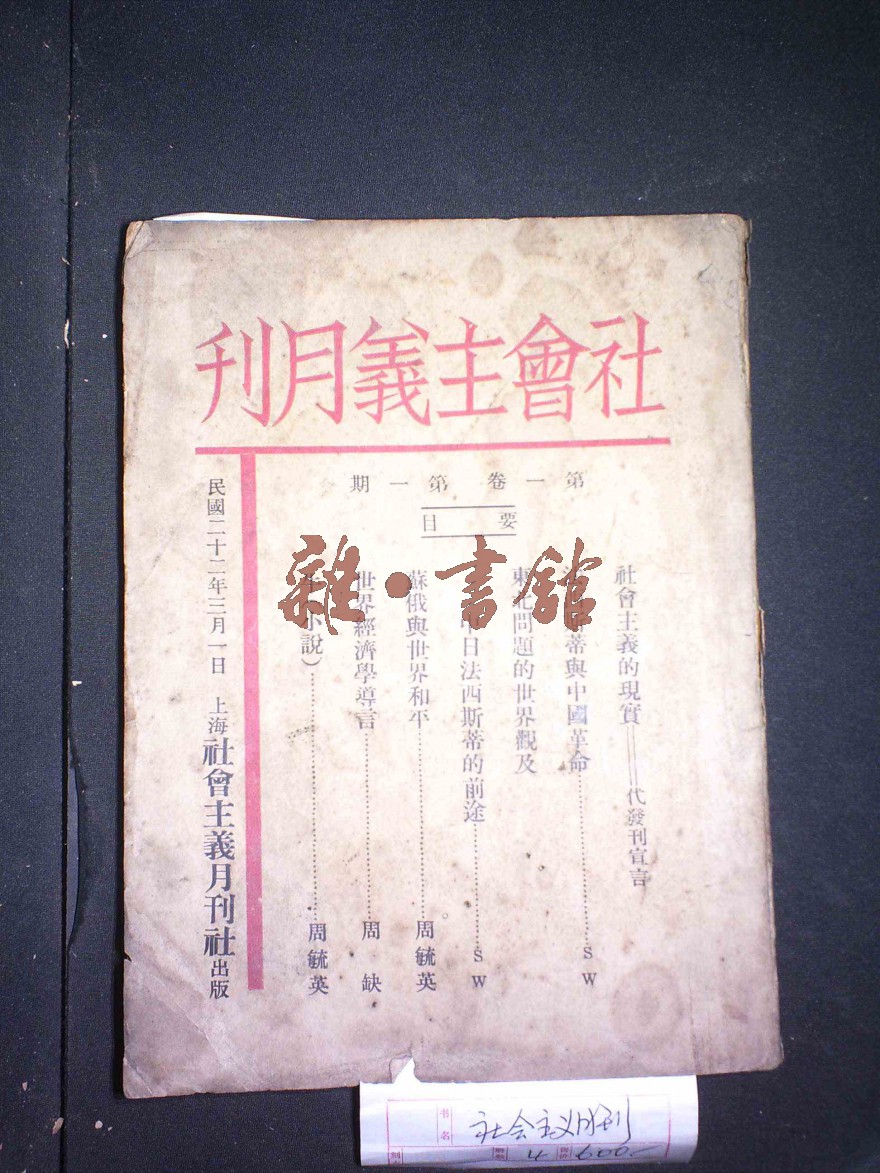 社會主義月刊
第一卷第一期
要目
社會主義的現實——代發刊宣言
蒂與中國革命……SW
東北問題的世界觀及
中日法西斯蒂的前途……SW
蘇俄與世界和平……周毓英
世界經濟學導言……周缺
小說）……周毓英
民國二十二年三月一日 上海社會主義月刊社出版
雜·書館
书名 社会主义月刊
4 600